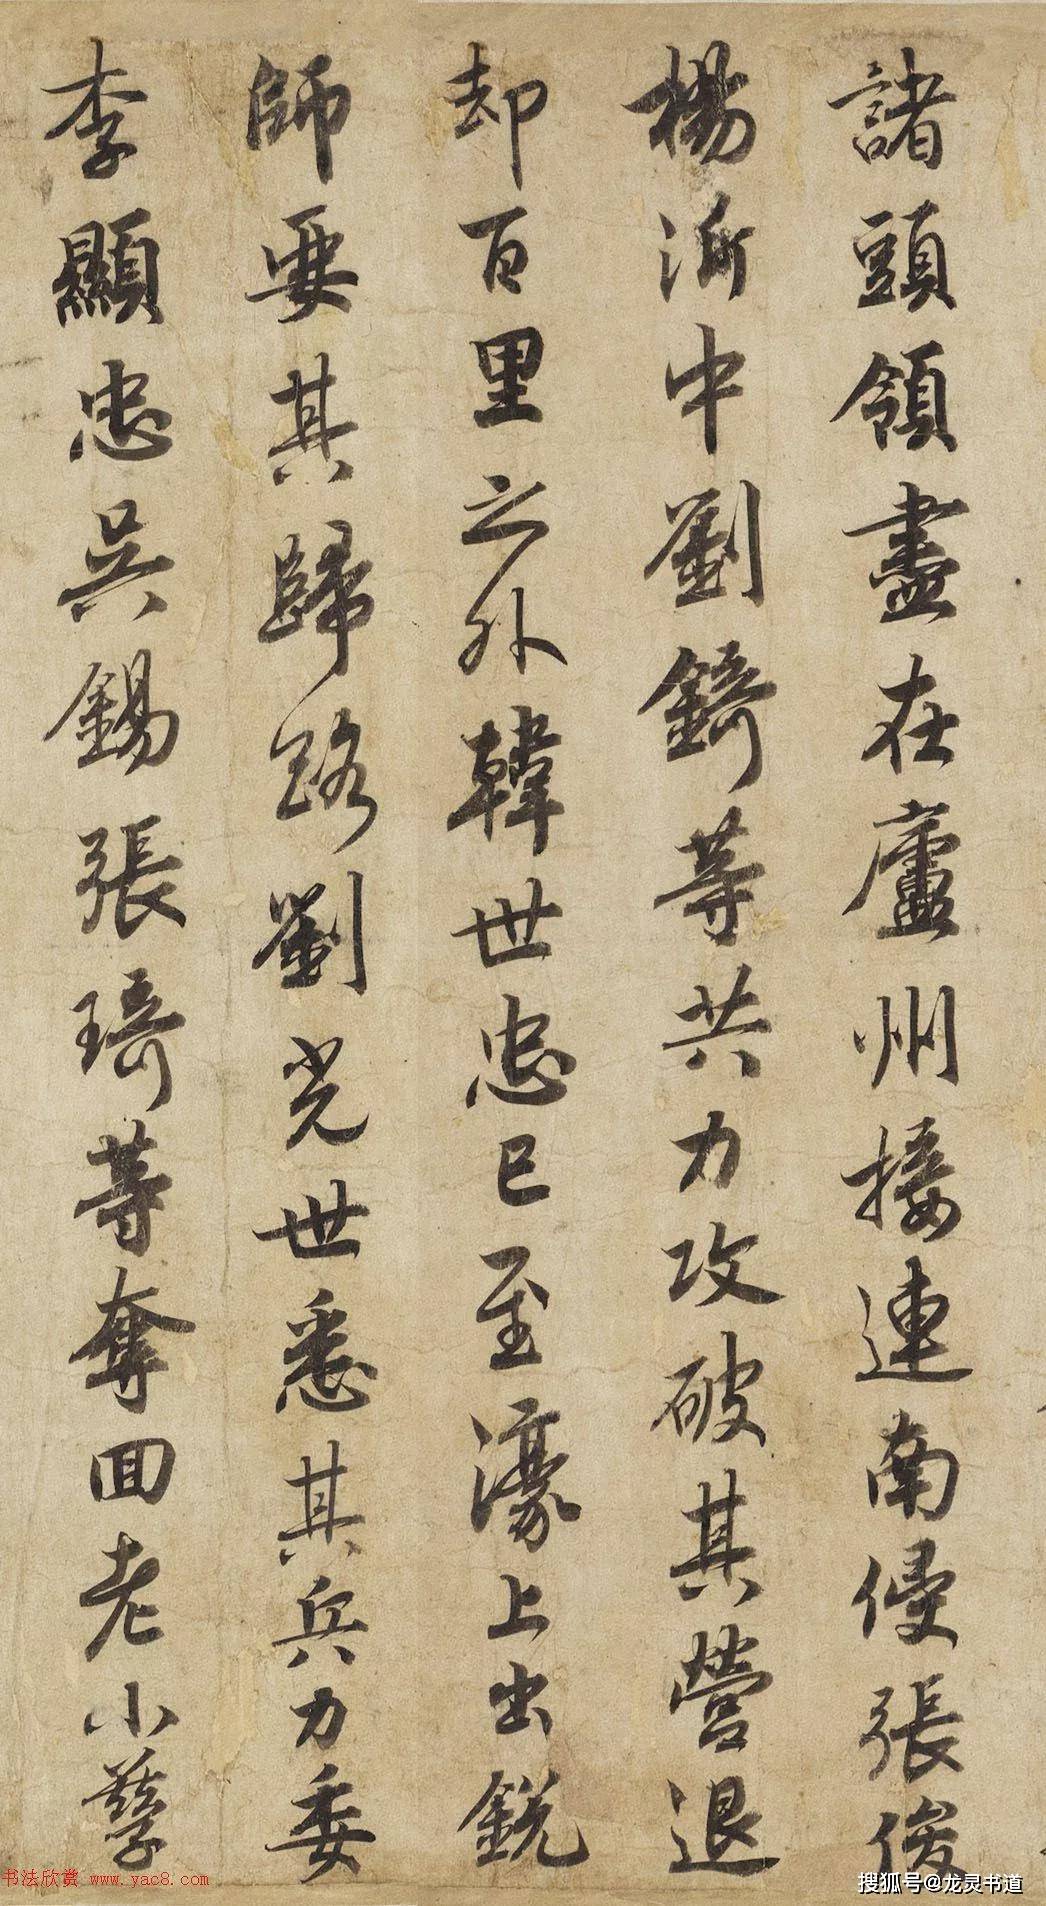 諸頭領盡在廬州接連南侵張俊
楊沂中劉錡等共力攻破其營退
却百里之外韓世忠已至濠上出銳
師要其歸路劉光世悉其兵力委
李顯忠吳錫張琦等奪回老小孳
书法欣赏 www.yac8.com
搜狐号@龙灵书道